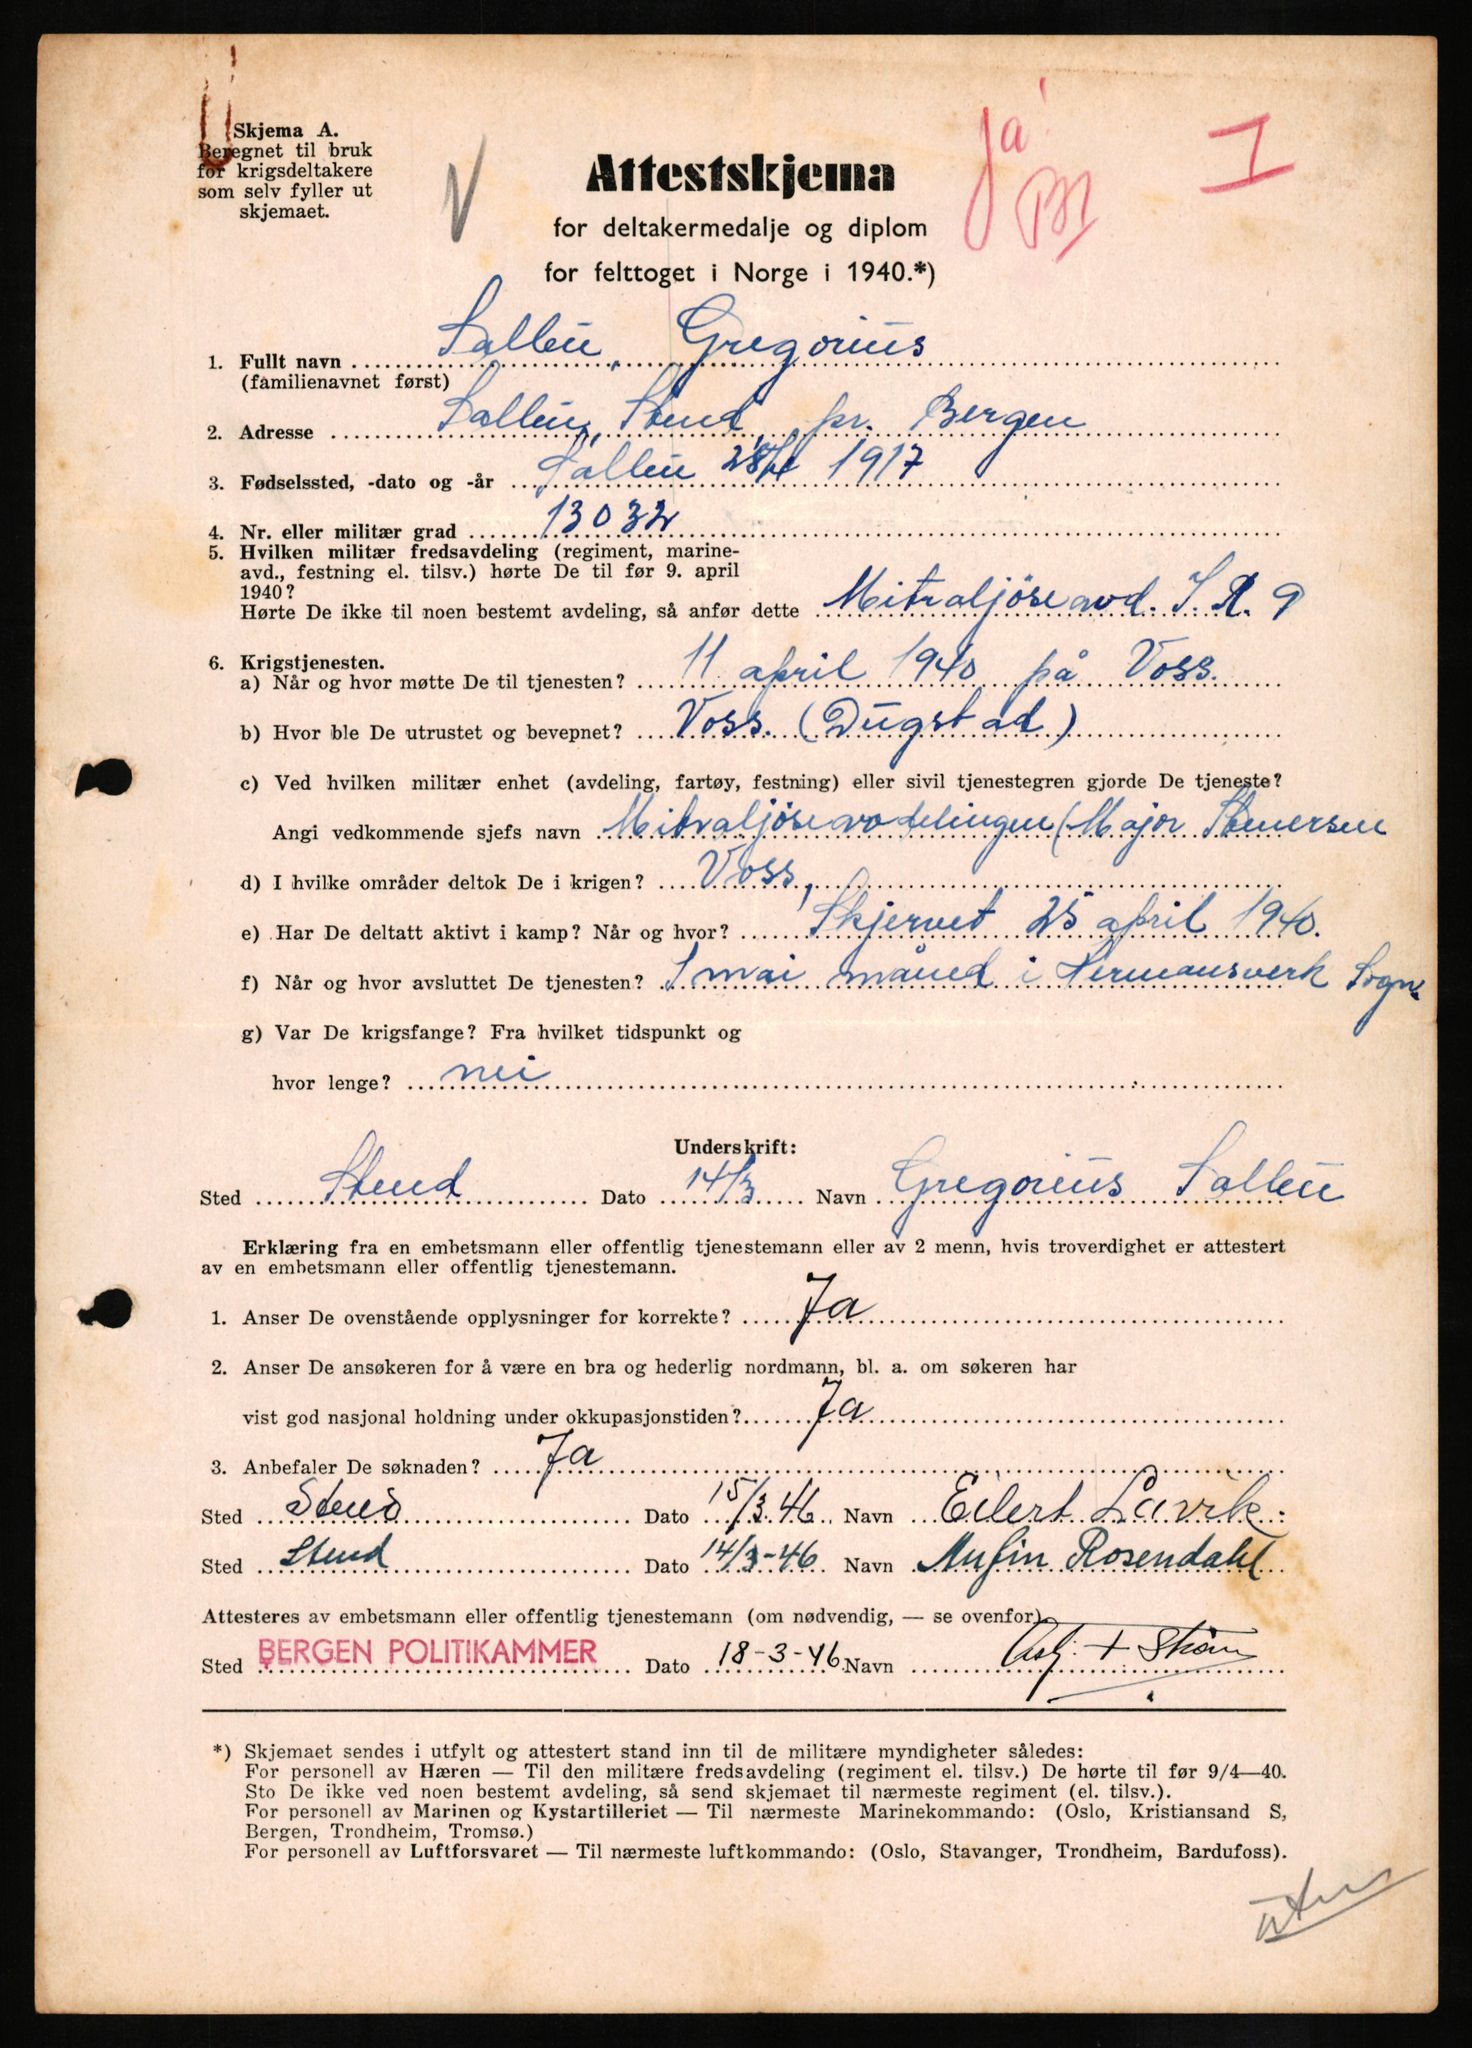 Skjema A.
Beregnet til bruk
for krigsdeltakere
som selv fyller ut
skjemaet.
V
Ja
I
Attestskjema
for deltakermedalje og diplom
for felttoget i Norge i 1940.*)
1. Fullt navn Salleü, Gregorius
(familienavnet først)
2. Adresse Stend pr. Bergen
3. Fødselssted, -dato og -år 1917
4. Nr. eller militær grad 13032
5. Hvilken militær fredsavdeling (regiment, marine-
avd., festning el. tilsv.) hørte De til før 9. april
1940?
Hørte De ikke til noen bestemt avdeling, så anfør dette Mitraljöseavd. I. R. 9
6. Krigstjenesten.
a) Når og hvor møtte De til tjenesten? 11 april 1940 på Voss.
b) Hvor ble De utrustet og bevepnet? Voss. (Dugstad)
c) Ved hvilken militær enhet (avdeling, fartøy, festning) eller sivil tjenestegren gjorde De tjeneste?
Angi vedkommende sjefs navn Mitraljöseavdelingen (Major Stenersen
d) I hvilke områder deltok De i krigen? Voss,
e) Har De deltatt aktivt i kamp? Når og hvor? Skjervet 25 april 1940.
f) Når og hvor avsluttet De tjenesten? I mai måned i Hermansverk Sogn.
g) Var De krigsfange? Fra hvilket tidspunkt og
hvor lenge? nei
Underskrift:
Sted Stend Dato 14/3 Navn Gregorius Salleü
Erklæring fra en embetsmann eller offentlig tjenestemann eller av 2 menn, hvis troverdighet er attestert
av en embetsmann eller offentlig tjenestemann.
1. Anser De ovenstående opplysninger for korrekte? Ja
2. Anser De ansøkeren for å være en bra og hederlig nordmann, bl. a. om søkeren har
vist god nasjonal holdning under okkupasjonstiden? Ja
3. Anbefaler De søknaden? Ja
Sted Stend Dato 15/3.46 Navn Eilert Lavik.
Sted Stend Dato 14/3-46 Navn Rosendahl
Attesteres av embetsmann eller offentlig tjenestemann (om nødvendig, — se ovenfor)
Sted BERGEN POLITIKAMMER Dato 18-3-46 Navn
*) Skjemaet sendes i utfylt og attestert stand inn til de militære myndigheter således:
For personell av Hæren — Til den militære fredsavdeling (regiment el. tilsv.) De hørte til før 9/4—40.
Sto De ikke ved noen bestemt avdeling, så send skjemaet til nærmeste regiment (el. tilsv.).
For personell av Marinen og Kystartilleriet — Til nærmeste Marinekommando: (Oslo, Kristiansand S,
Bergen, Trondheim, Tromsø.)
For personell av Luftforsvaret — Til nærmeste luftkommando: (Oslo, Stavanger, Trondheim, Bardufoss).